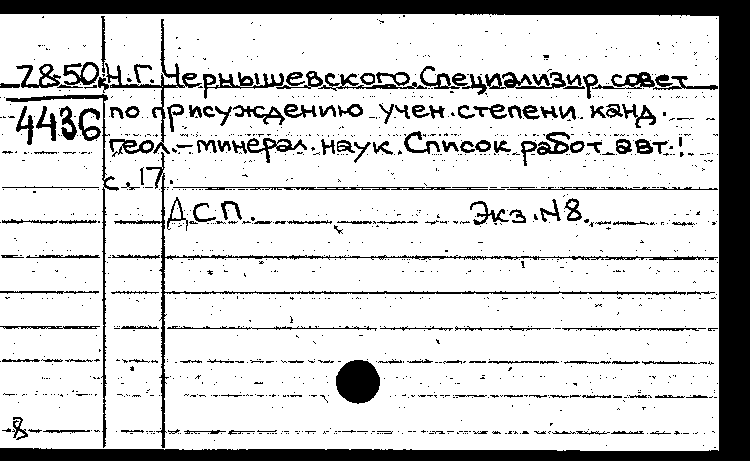 78-50 Н.Г. Чернышевского. Специализир совет
4436 по присуждению учен. степени канд.
геол.-минерал. наук. Список работ авт.:
с. 17.
ДСП. Экз. N8.
8